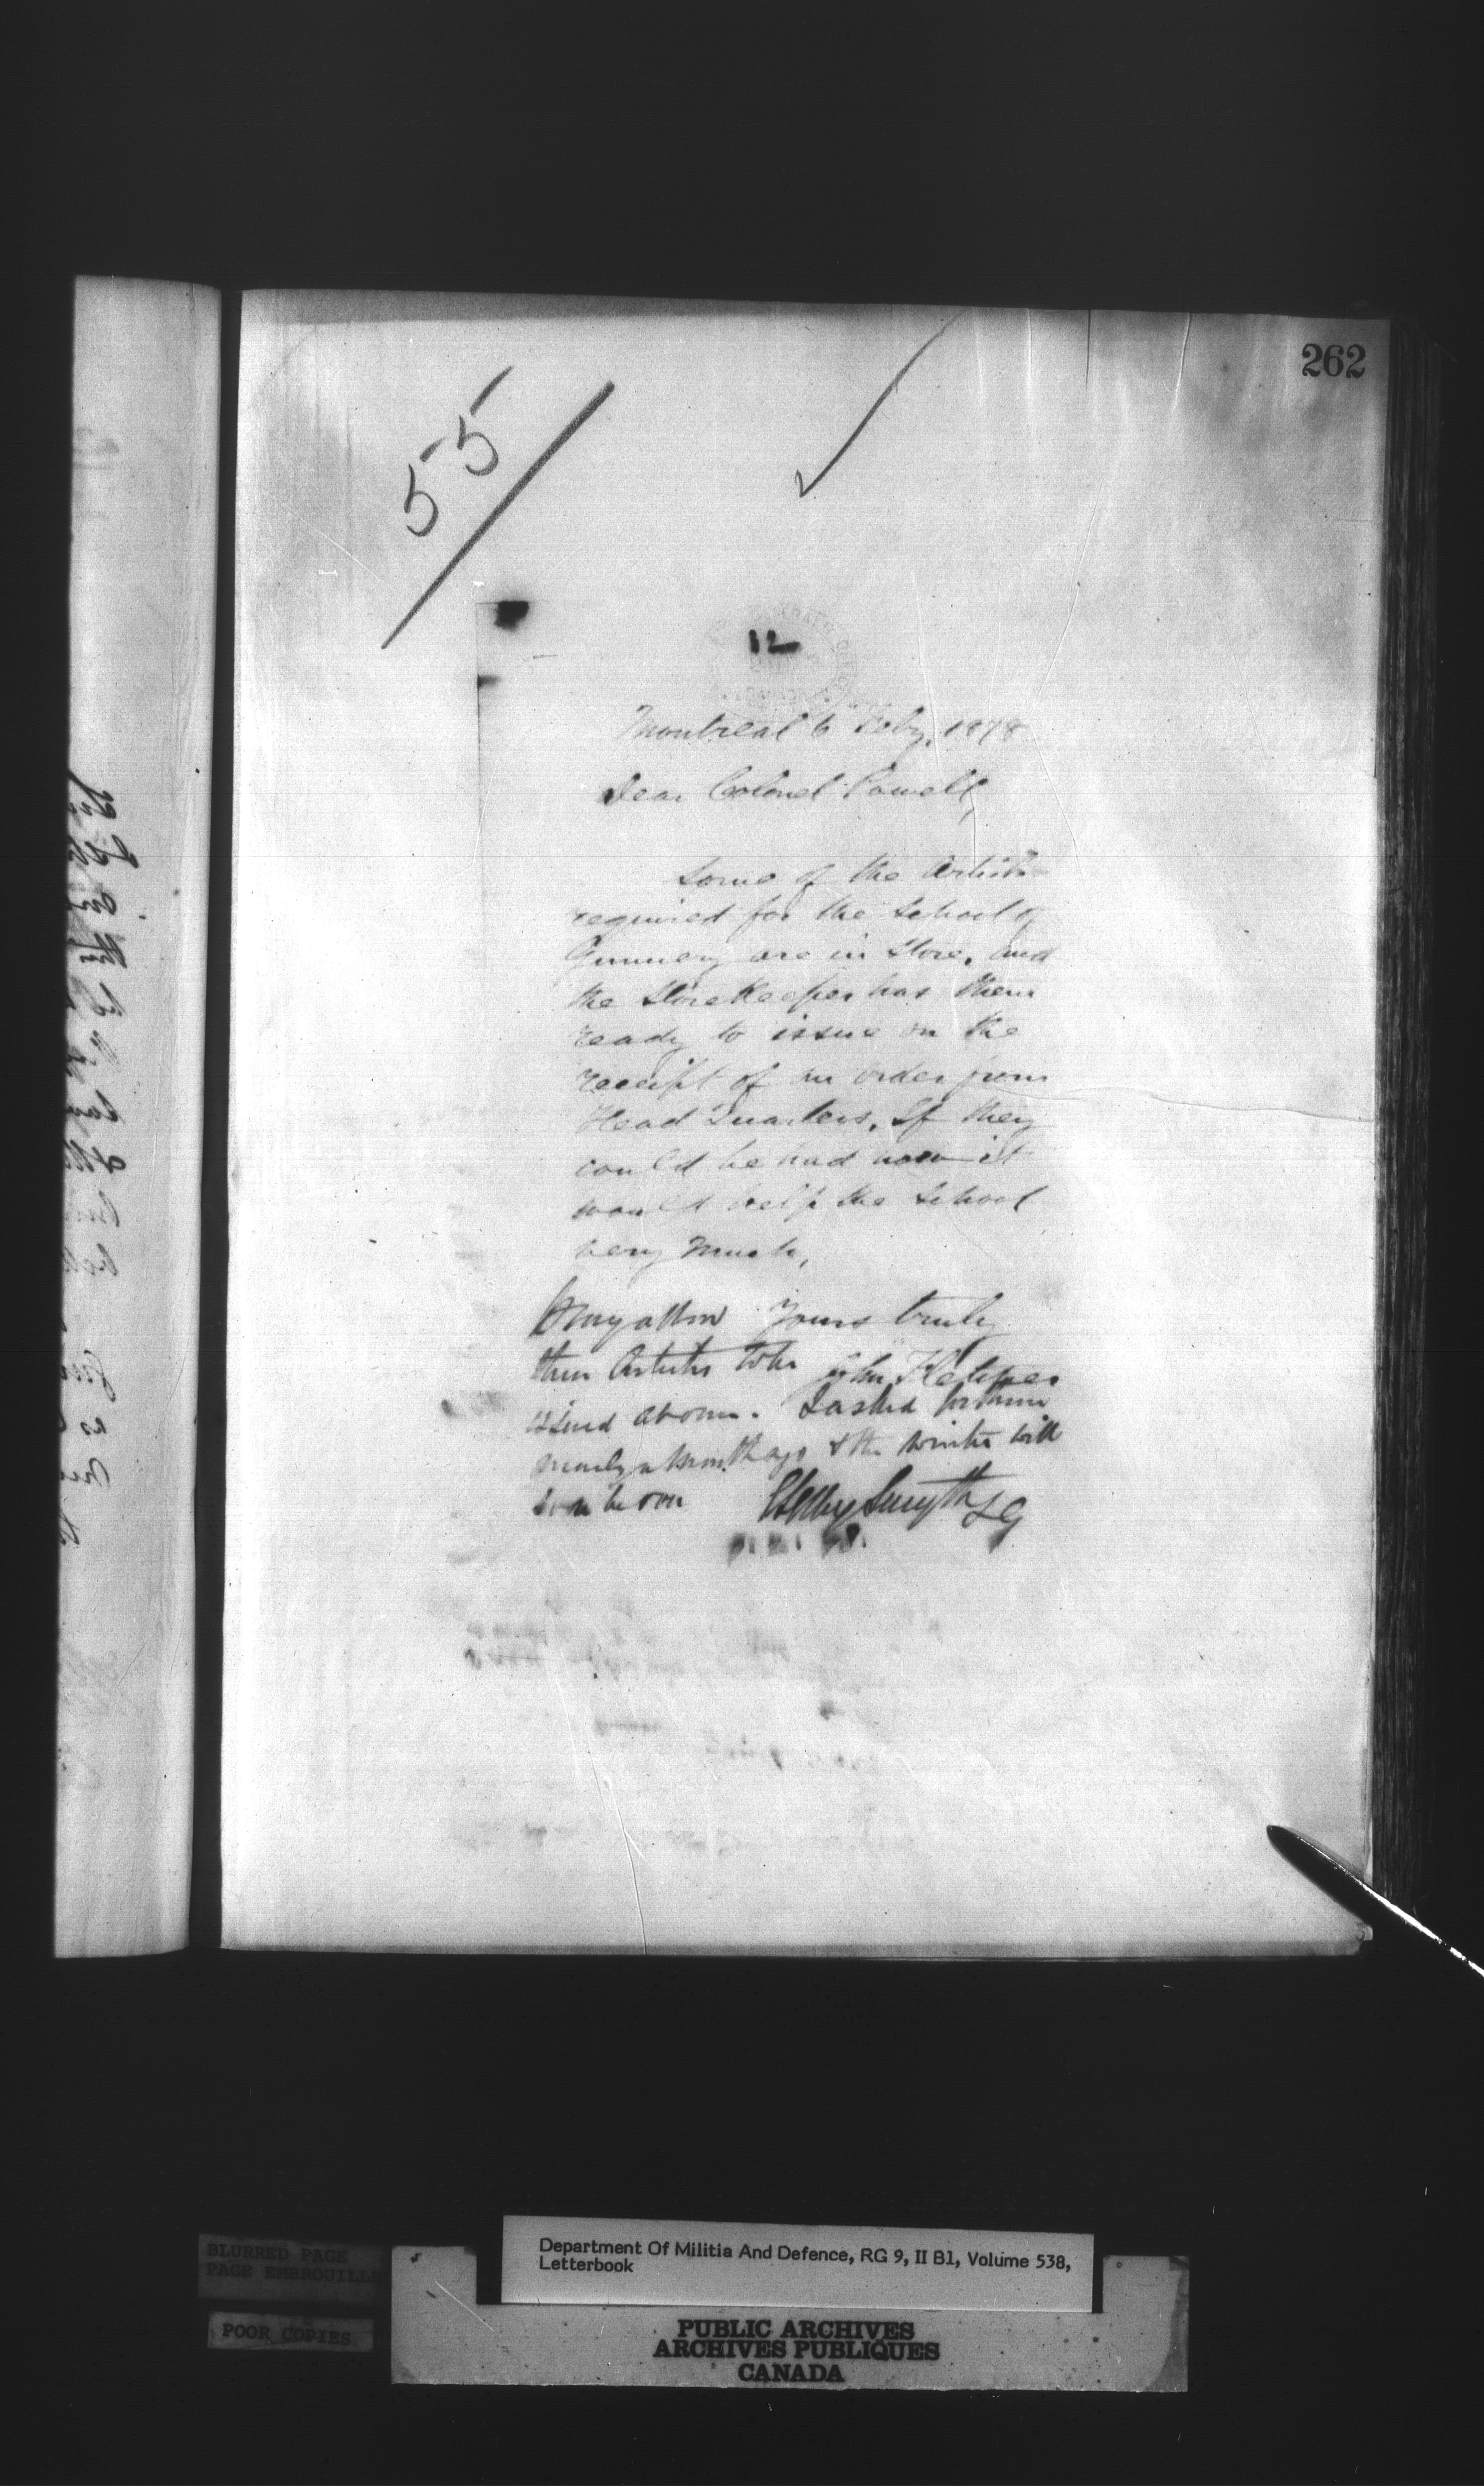 262
55
12
Montreal 6 Feby. 1878
Dear Colonel Powell,
Some of the Articles
required for the School of
Gunnery are in Store, and
the StoreKeeper has them
ready to issue on the
receipt of an order from
Head Quarters. If they
could be had now it
would help the School
very much,
Yours truly
John Fletcher
Pray allow
these Articles to be
issued at once. I asked for them
nearly a month ago & the winter will
soon be over
Selby Smyth LG
BLURRED PAGE
PAGE EMBROUILLÉ
POOR COPIES
Department Of Militia And Defence, RG 9, II B1, Volume 538,
Letterbook
PUBLIC ARCHIVES
ARCHIVES PUBLIQUES
CANADA